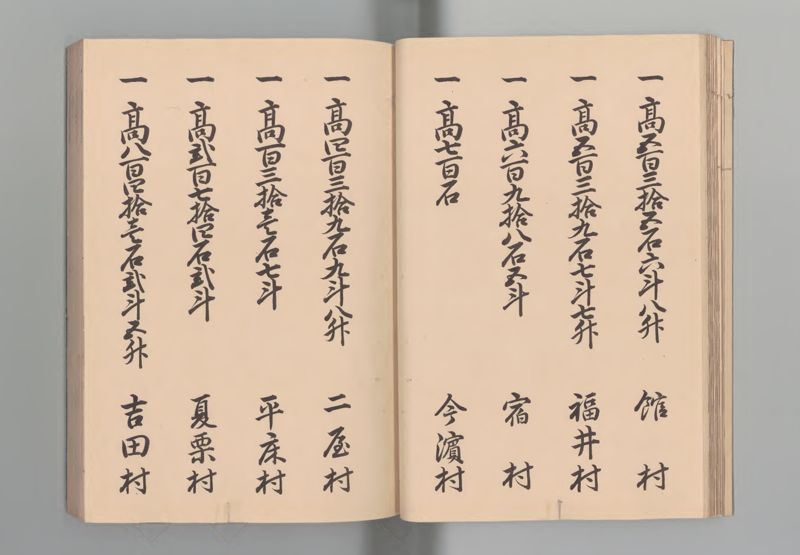 一 高五百三拾五石六斗八升 館村
一 高五百三拾九石七斗七升 福井村
一 高六百九拾八石五斗 宿村
一 高七百石 今濱村
一 高四百三拾九石九斗八升 二屋村
一 高百三拾壱石七斗 平床村
一 高弐百七拾四石弐斗 夏栗村
一 高八百四拾壱石弐斗五升 吉田村